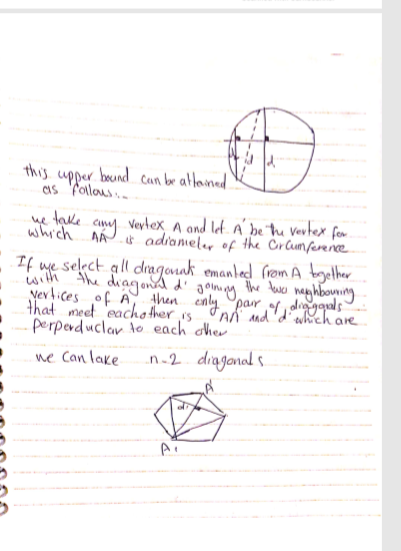 d'
d
this upper bound can be attained
as follows:-
we take any vertex A and let A' be the vertex for
which AA' is adiameter of the CirCumference
If we select all dragonals emanted from A together
with the diagonal d' joining the two neghbouring
vertices of A' then only pair of diagonals
that meet eachother is AA' and d' which are
perperduclar to each other
we Can take n-2 diagonals
A'
d'
A